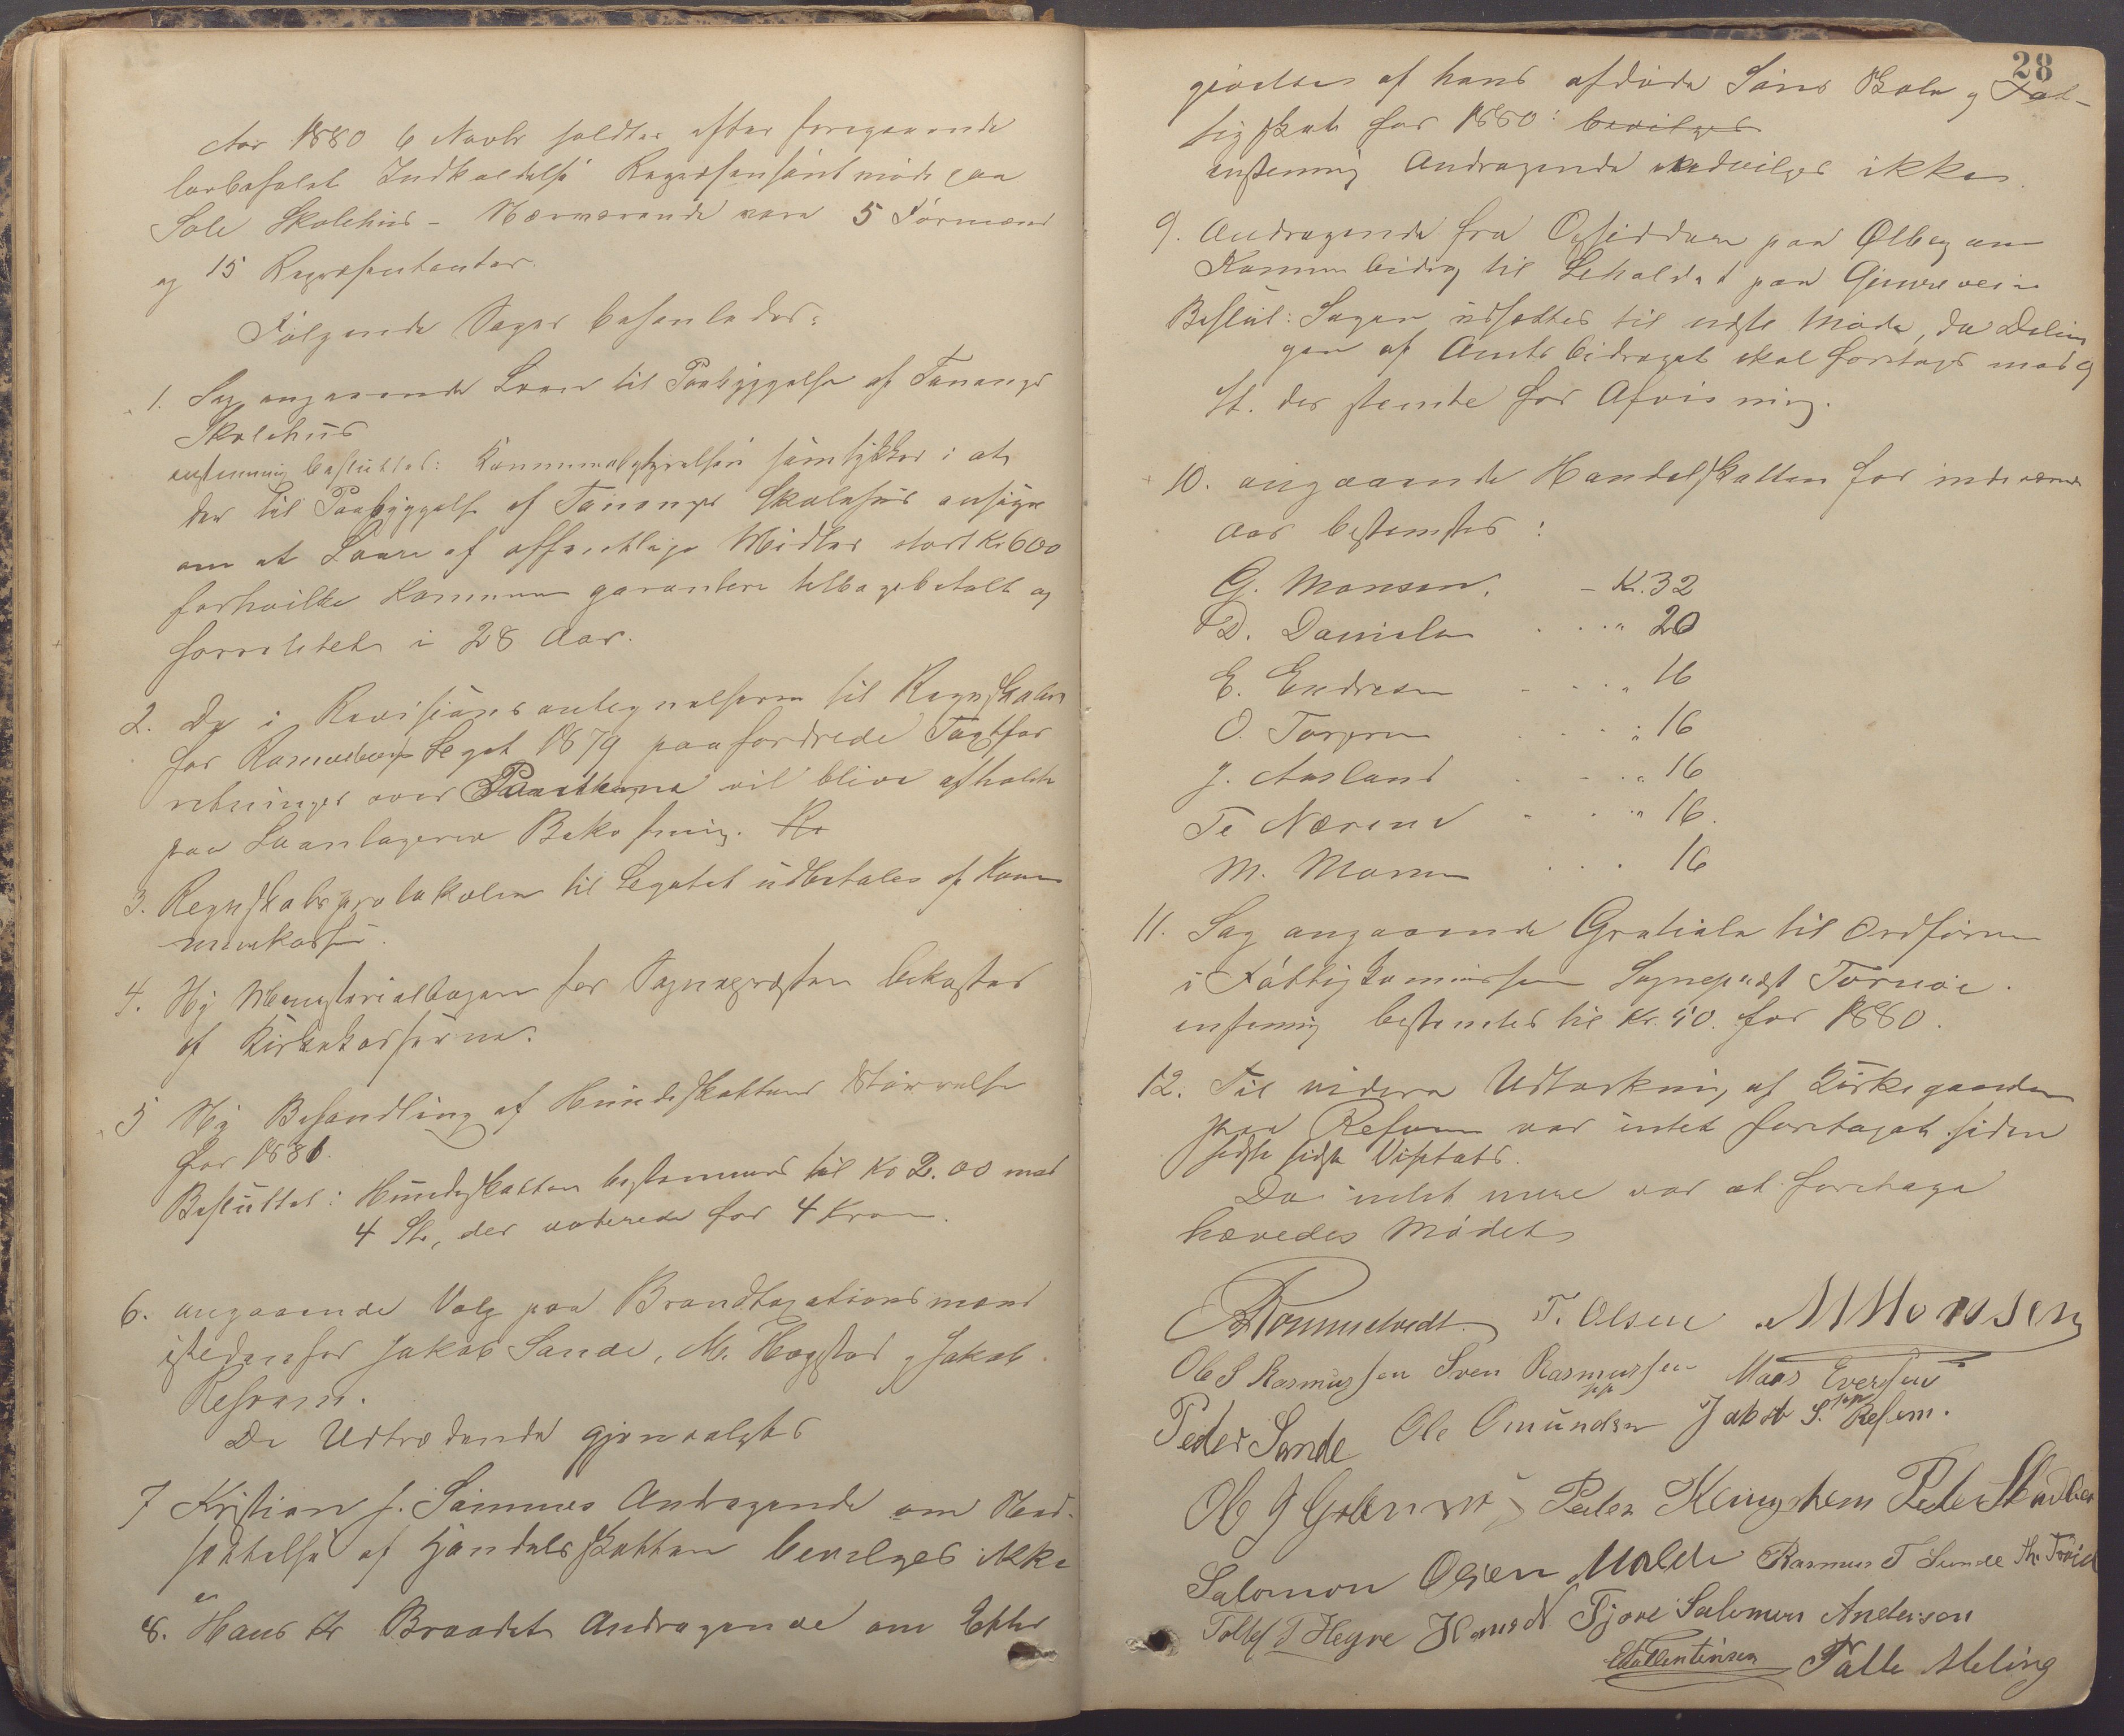 Aar 1880 6 Novbr holdtes efter foregaaende
lovbefalet Indkaldelse Repræsentantmøde paa
Sole Skolehus - Nærværende vare 5 Formænd
og 15 Repræsentanter.
Følgende Sager behandledes:
1. Sag angaaende Laan til Paabyggelse af Tananger
Skolehus
enstemmig besluttet: Kommunebestyrelsen samtykker i at
der til Paabyggelse af Tananger Skolehus ansøges
om et Laan af offentlige Midler stort Kr 600
forhvilke Kommunen garanterer tilbagebetalt og
forrentet i 28 Aar.
2. De i Revisionsantegnelserne til Regnskabet
for Legat 1879 paafordrede Taxtfor
retninger over Panterne vil blive afholdte
paa Laantagerens Bekostning. Kr
3. Regnskabsprotokolen til Legatet udbetales af Kom
munekassen.
4. Ny Ministerialbogen for Sognepræsten bekostes
af Kirkekasserne.
5 Ny Behandling af Hundeskattens Størrelse
for 1881.
Besluttet: Hundeskatten bestemmes til Kr 2.00 mod
4 St, der voterede for 4 Kron.
6. angaaende Valg paa Brandtaxationsmænd
istedenfor Jakob Sande, M. Hogstad og Jakob
Resnæs.
De Udtrædende gjenvalgtes
7 Kristian J. Sømmes Andragende om Ned-
sættelse af Handelsskatten bevilges ikke
8. Hans Kr Braadet Andragende om Efter
28
givelse af hans afdøde Søns Skole og Fat-
tigskat for 1880: bevilges
enstemmig Andragende indvilges ikke.
9. Andragende fra Opsidderne paa Ølberg om
Kommunebidrag til Beholdet paa Gjennevein
Beslut: Sagen udsættes til næste Møde, da Delin
gen af Amtsbidraget skal foretages mod 9
St. der stemte for Afvisning.
10. angaaende Handelskatten for indeværende
Aar bestemtes:
G. Monsen. - Kr. 32
D. Danielsen . . . " 20
E. Endresen . . . " 16
O. Torgersen . . . " 16
J. Aasland . . . " 16
Te Nærland . . . " 16.
M. Monsen . . . 16
11. Sag angaaende Gratiale til Ordføreren
i Fattigkommissionen Sognepræst Tornøe.
enstemmig bestemtes til Kr. 50. for 1880.
12. Til videre Udtørkning af Kirkegaarden
paa Resnæs var intet foretaget siden
sidste sidste Visitats.
Da intet mere var at foretage
hævedes Mødet
Rommetvedt T. Olsen M Monsen
Ole S Rasmussen Sven Rasmussen Maas Eversen
Peder Sande Ole Omundsen pp Jakob S. Resem. pp
Ole G Peder Peder Skadber
Salomon Olsen Malde Rasmus T Sunde
Tollef T Heyre Hans N Tjore Salomon Andersen
E Vallentinsen Talle Meling